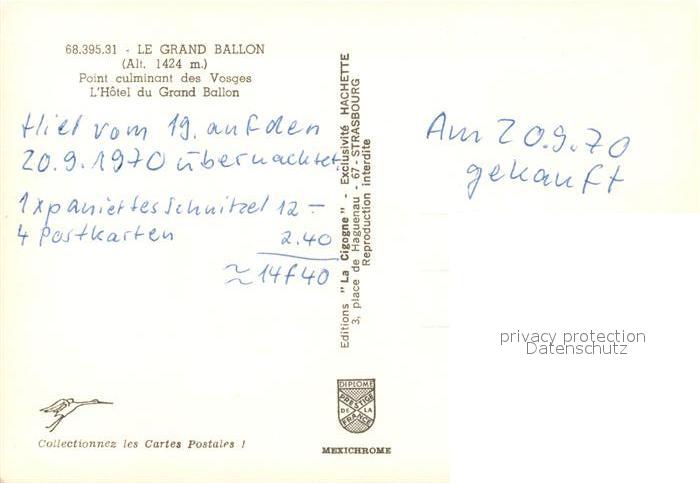 68.395.31 - LE GRAND BALLON
(Alt. 1424 m.)
Point culminant des Vosges
L'Hôtel du Grand Ballon
Hier vom 19. auf den
20.9.1970 übernachtet.
1x paniertes Schnitzel 12 –
4 Postkarten 2.40
≈ 14f40
Am 20.9.70
gekauft
Editions "La Cigogne" - Exclusivité HACHETTE
3, place de Haguenau - 67 - STRASBOURG
Reproduction interdite
privacy protection
Datenschutz
DIPLOME
PRESTIGE
DE LA
FRANCE
Collectionnez les Cartes Postales !
MEXICHROME